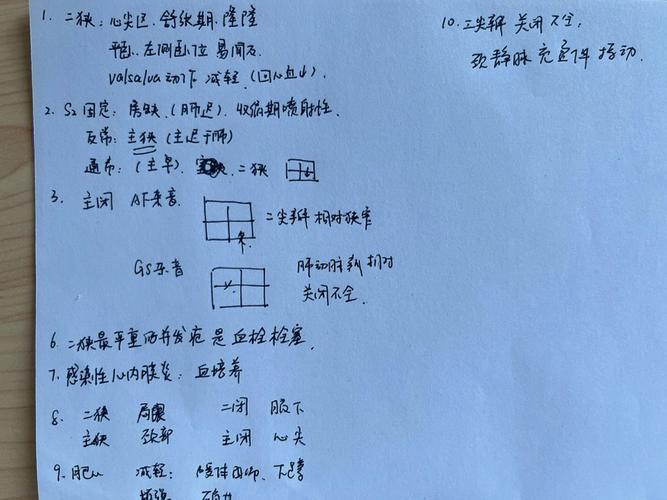 1. 二狭: 心尖区. 舒张期. 隆隆
平卧. 左侧卧位 易闻及.
valsalva动作 减轻. (回心血少).
2. S2 固定: 房缺. (肺迟). 收缩期喷射性.
反常: 主狭 (主迟于肺)
通常: (主早). 二狭
3. 主闭 AF杂音.
二尖瓣 相对狭窄
GS杂音
肺动脉瓣 相对
关闭不全.
6. 二狭最严重的并发症 是 血栓栓塞.
7. 感染性心内膜炎: 血培养
8. 二狭 局限 二闭 腋下
主狭 颈部 主闭 心尖
9. 减轻: 下蹲
增强
10. 三尖瓣 关闭不全.
颈静脉 充盈伴 搏动.